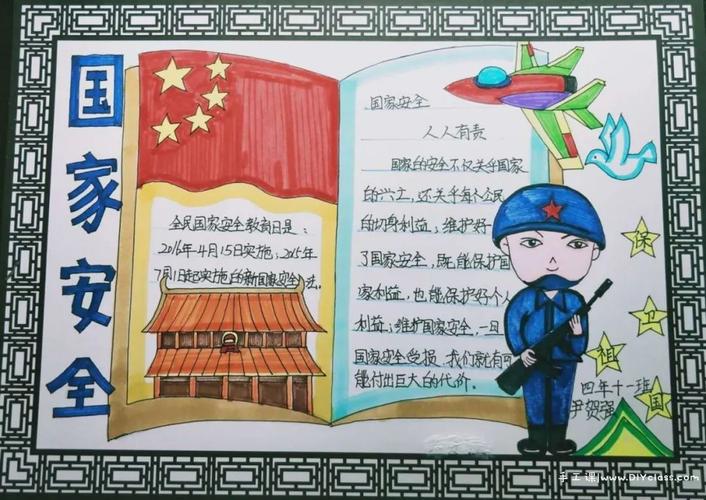 国家安全
全民国家安全教育日是：
2016年4月15日实施；2015年
7月1日起实施的新国家安全法。
国家安全
人人有责
国家的安全不仅关乎国家
的兴亡，还关乎每个公民
的切身利益；维护好
了国家安全，既能保护国
家利益，也能保护好个人
利益；维护国家安全，一旦
国家安全受损，我们就有可
能付出巨大的代价。
保
卫
祖
国
四年十一班
尹贺强
手工课|www.DIYclass.com